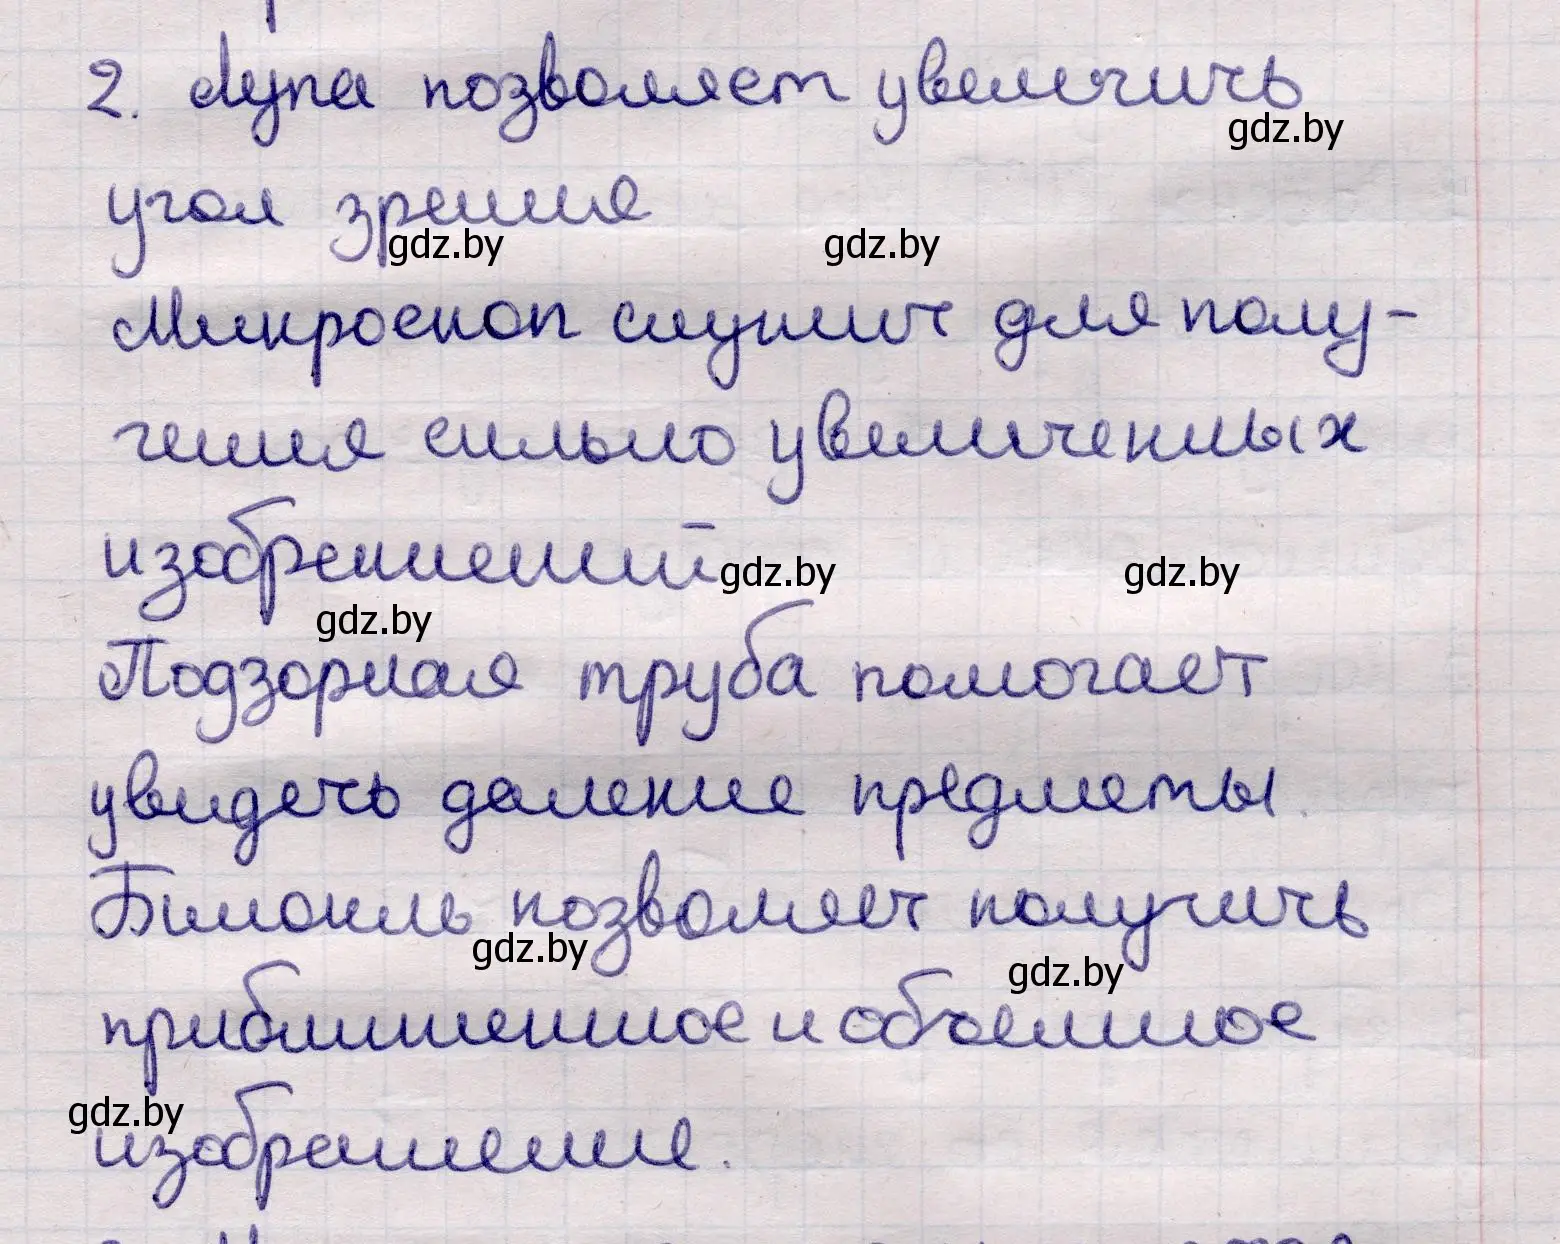 2. Лупа позволяет увеличить
gdz.by
угол зрения
gdz.by gdz.by
Микроскоп служит для полу-
чения сильно увеличенных
изображений
gdz.by gdz.by
gdz.by
Подзорная труба помогает
увидеть далекие предметы.
Бинокль позволяет получить
gdz.by gdz.by
приближенное и объемное
gdz.by
изображение.